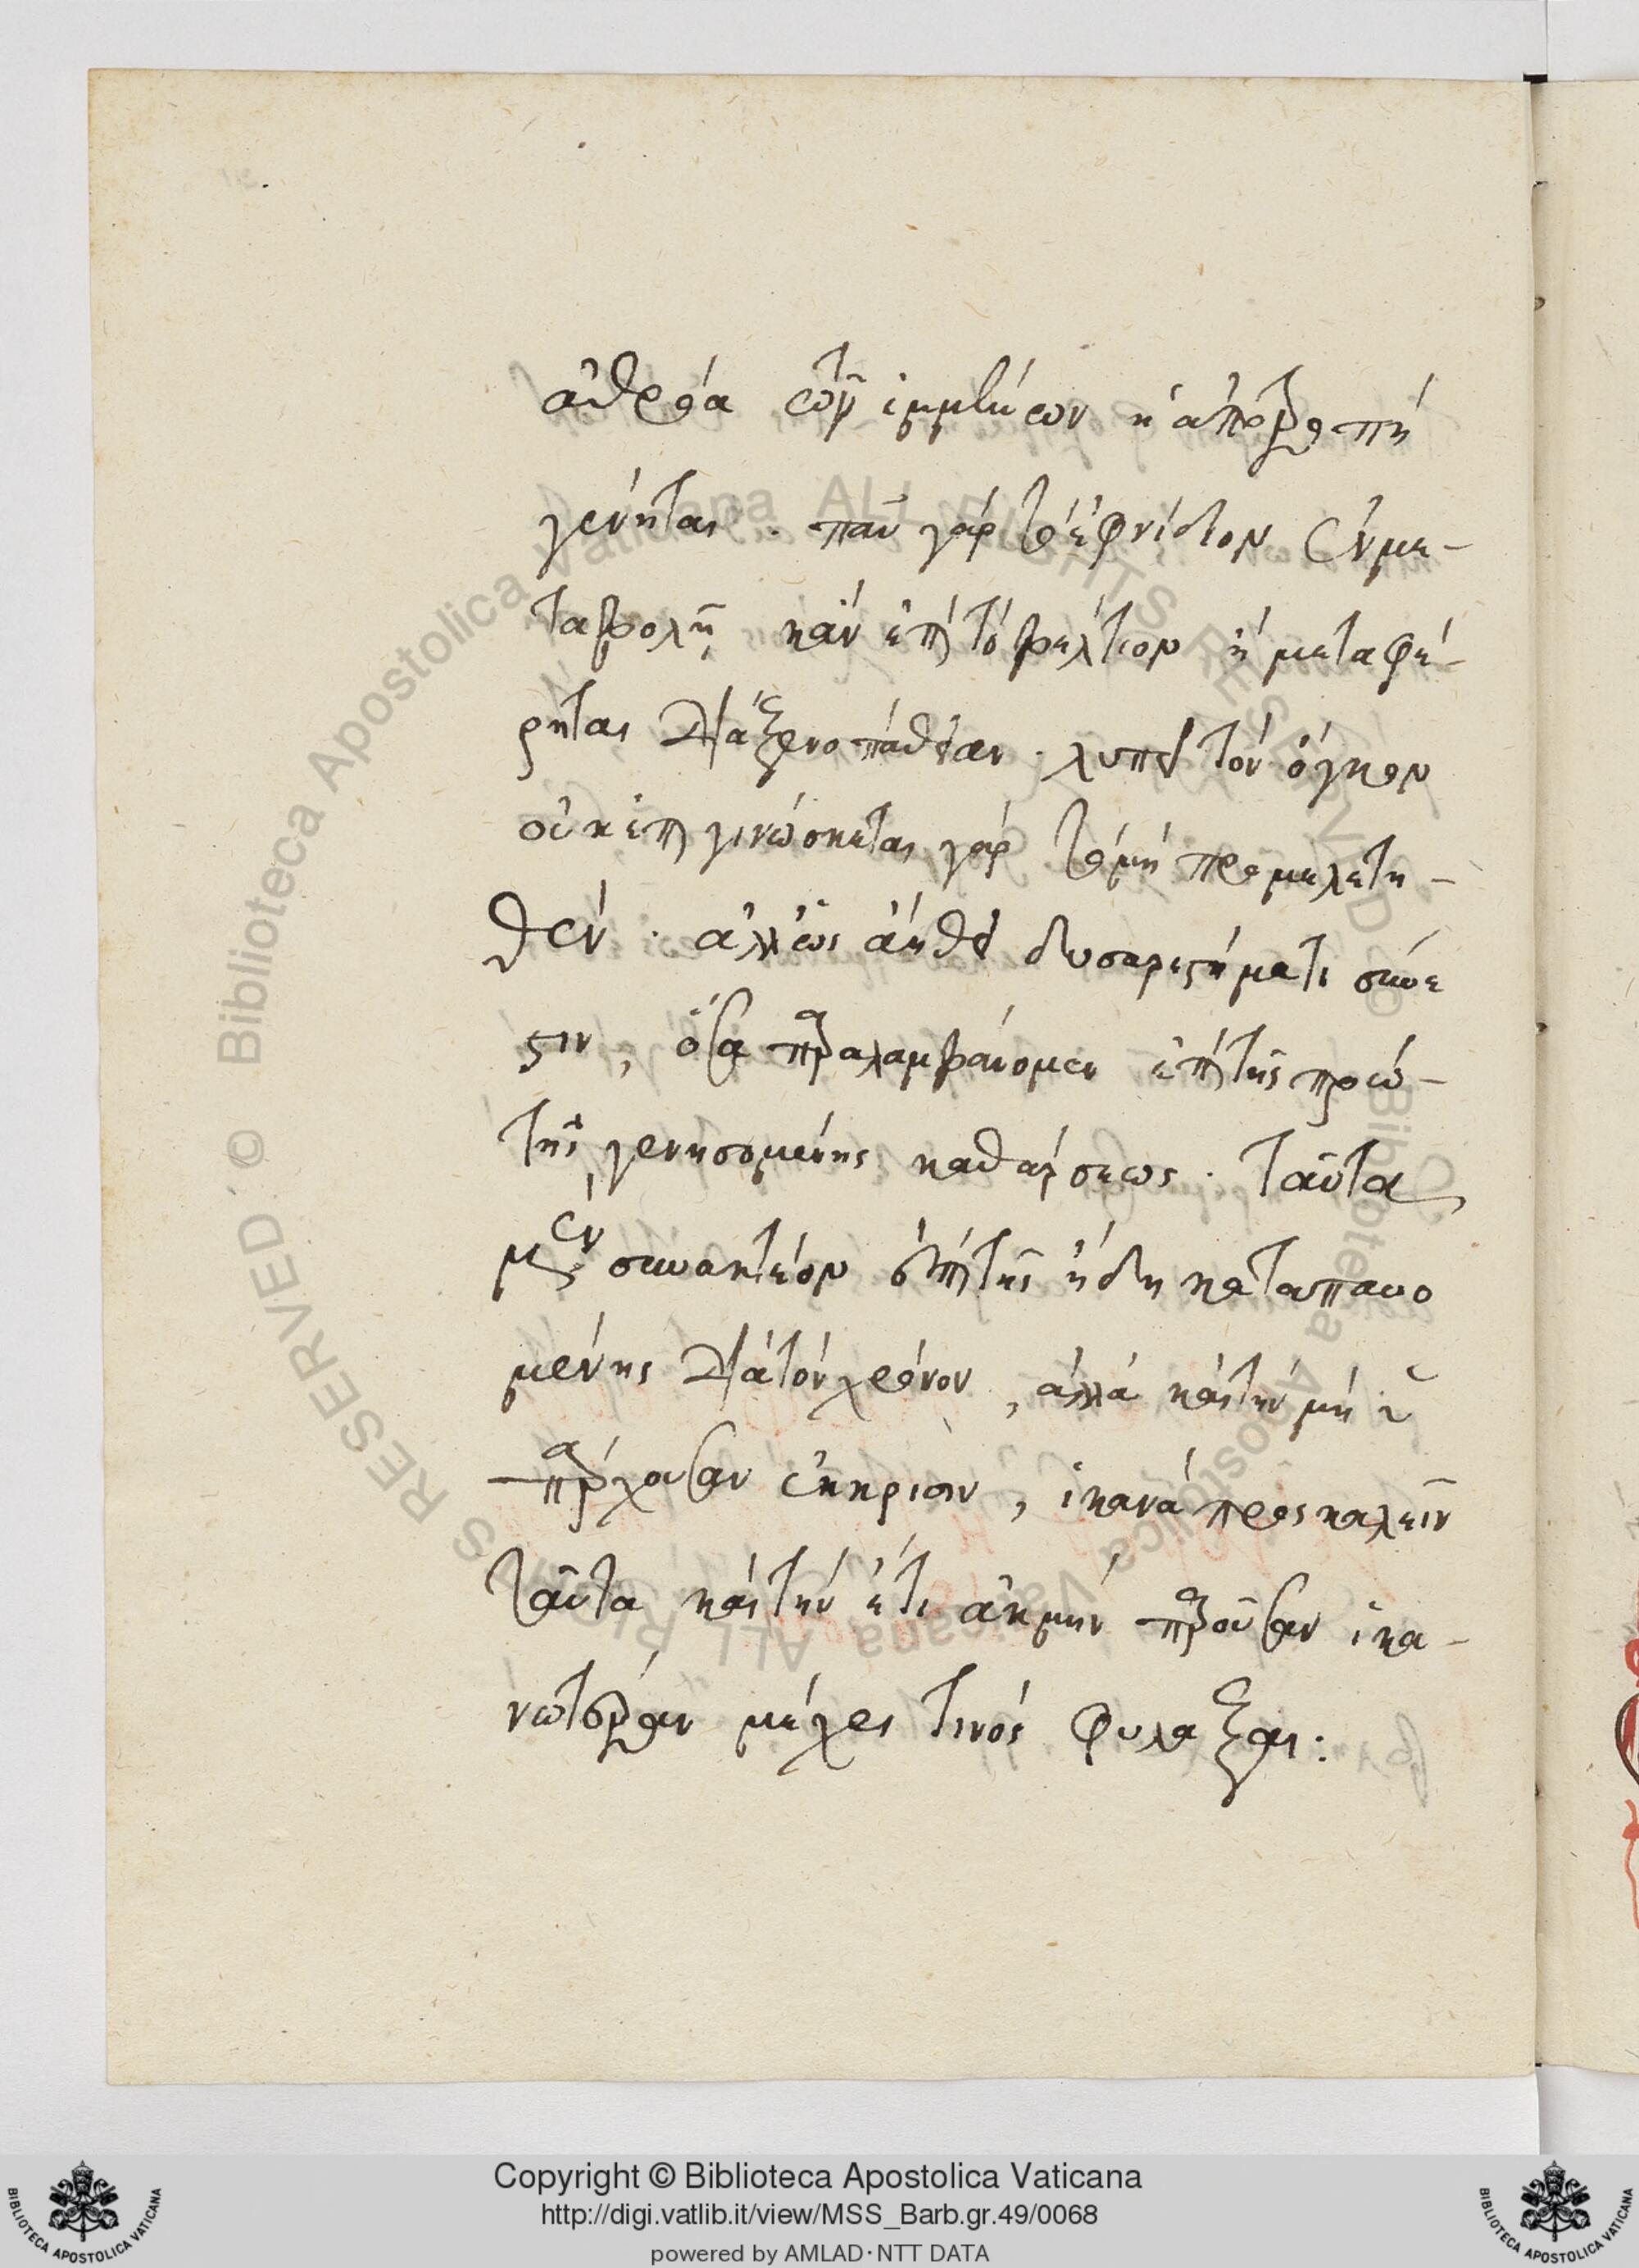 ἀθρόα τῶν ἐμμήνων ἡ ἀποτροπὴ
γένηται. πᾶν γὰρ τὸ αἰφνίδιον ἐν με-
ταβολῇ, κἂν ἐπὶ τὸ βέλτιον ἡ μεταφέ-
ρηται διὰ ξενοπάθειαν. λυπεῖ τὸν ὄγκον
οὐκ ἐπιγινώσκεται γὰρ τὸ μὴ προμελετη-
θέν. ἀλλ' ὡς ἀήθει δυσαρεστήματι σύνε
στιν, ὅσα παραλαμβάνομεν ἐπὶ τῆς πρώ-
της γενησομένης καθάρσεως. ταῦτα
μὲν συνακτέον ἐπὶ τῆς ἤδη καταπαυο
μένης διὰ τὸν χρόνον, ἀλλὰ καὶ τὴν μὴ
παρέχουσαν ἔκκρισιν, ἱκανὰ προσκαλεῖν
ταῦτα, καὶ τὴν ἔτι ἀκμὴν παροῦσαν ἱκα-
νωτέραν μέχρι τινὸς φυλάξαι:
Copyright © Biblioteca Apostolica Vaticana
http://digi.vatlib.it/view/MSS_Barb.gr.49/0068
powered by AMLAD·NTT DATA